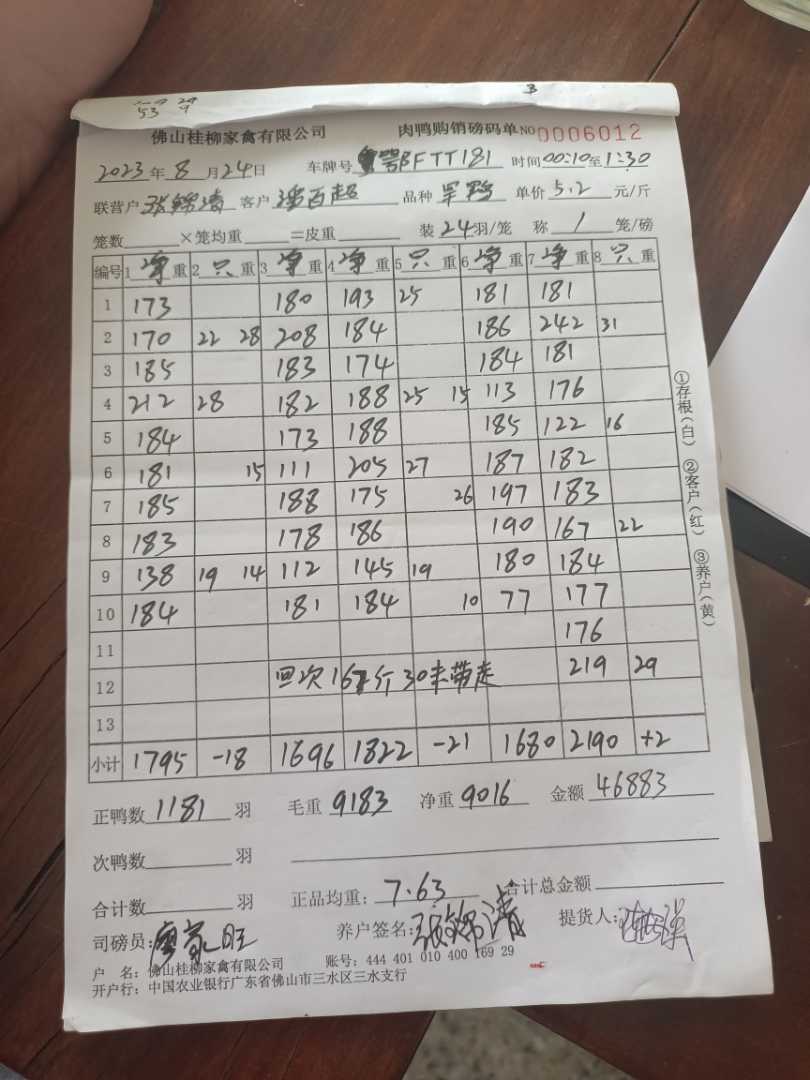 53 9
3
佛山桂柳家禽有限公司 肉鸭购销磅码单 NO 0006012
2023年8月24日 车牌号 鄂FTT181 时间00:10至1:30
联营户 张锦涛 客户 潘百超 品种 单价5.2元/斤
笼数 ×笼均重 =皮重 装24羽/笼 称1笼/磅
编号 1净重 2只重 3净重 4净重 5只重 6净重 7净重 8只重
1 173 180 193 25 181 181
2 170 22 28 208 184 186 242 31
3 185 183 174 184 181
4 212 28 182 188 25 15 113 176
5 184 173 188 185 122 16
6 181 15 111 205 27 187 182
7 185 188 175 26 197 183
8 183 178 186 190 167 22
9 138 19 14 112 145 19 180 184
10 184 181 184 10 77 177
11 176
12 回次167斤30未带走 219 29
13
小计 1795 -18 1696 1822 -21 1680 2190 +2
正鸭数1181羽 毛重9183 净重9016 金额46883
次鸭数 羽
合计数 羽 正品均重:7.63 合计总金额
司磅员:廖家旺 养户签名:张锦涛 提货人:
户 名:佛山桂柳家禽有限公司 账号:444 401 010 400 169 29
开户行:中国农业银行广东省佛山市三水区三水支行
①存根(白) ②客户(红) ③养户(黄)